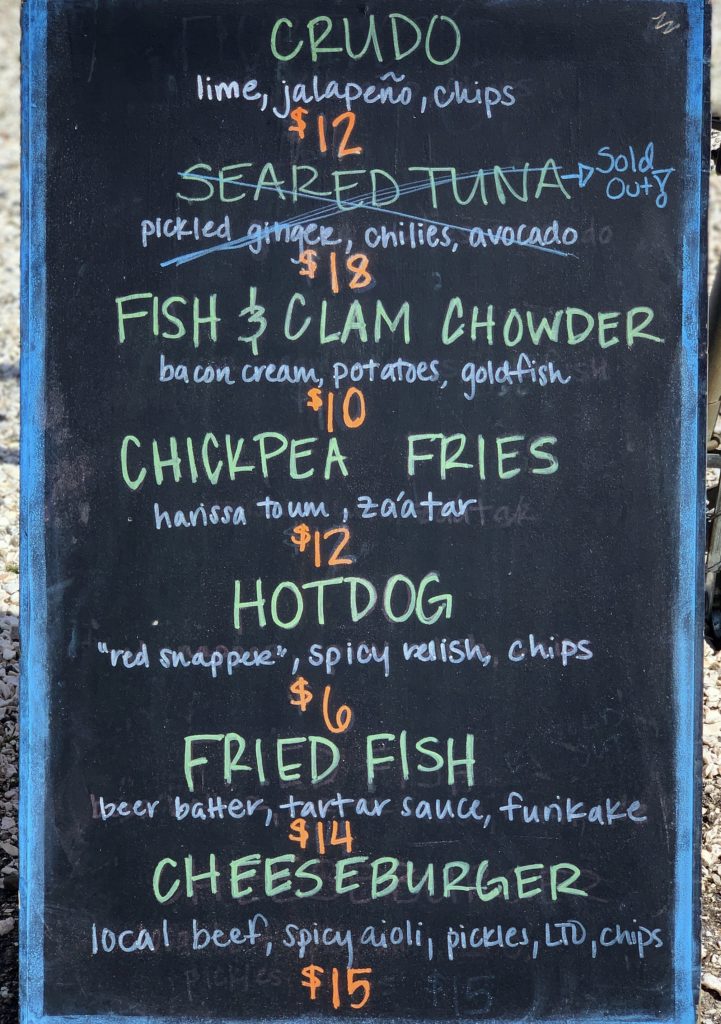 CRUDO
lime, jalapeño, chips
$12
SEARED TUNA → Sold
Out
pickled ginger, chilies, avocado
$18
FISH & CLAM CHOWDER
bacon cream, potatoes, goldfish
$10
CHICKPEA FRIES
harissa toum, za'atar
$12
HOTDOG
"red snapper", spicy relish, chips
$6
FRIED FISH
beer batter, tartar sauce, furikake
$14
CHEESEBURGER
local beef, spicy aioli, pickles, LTO, chips
$15